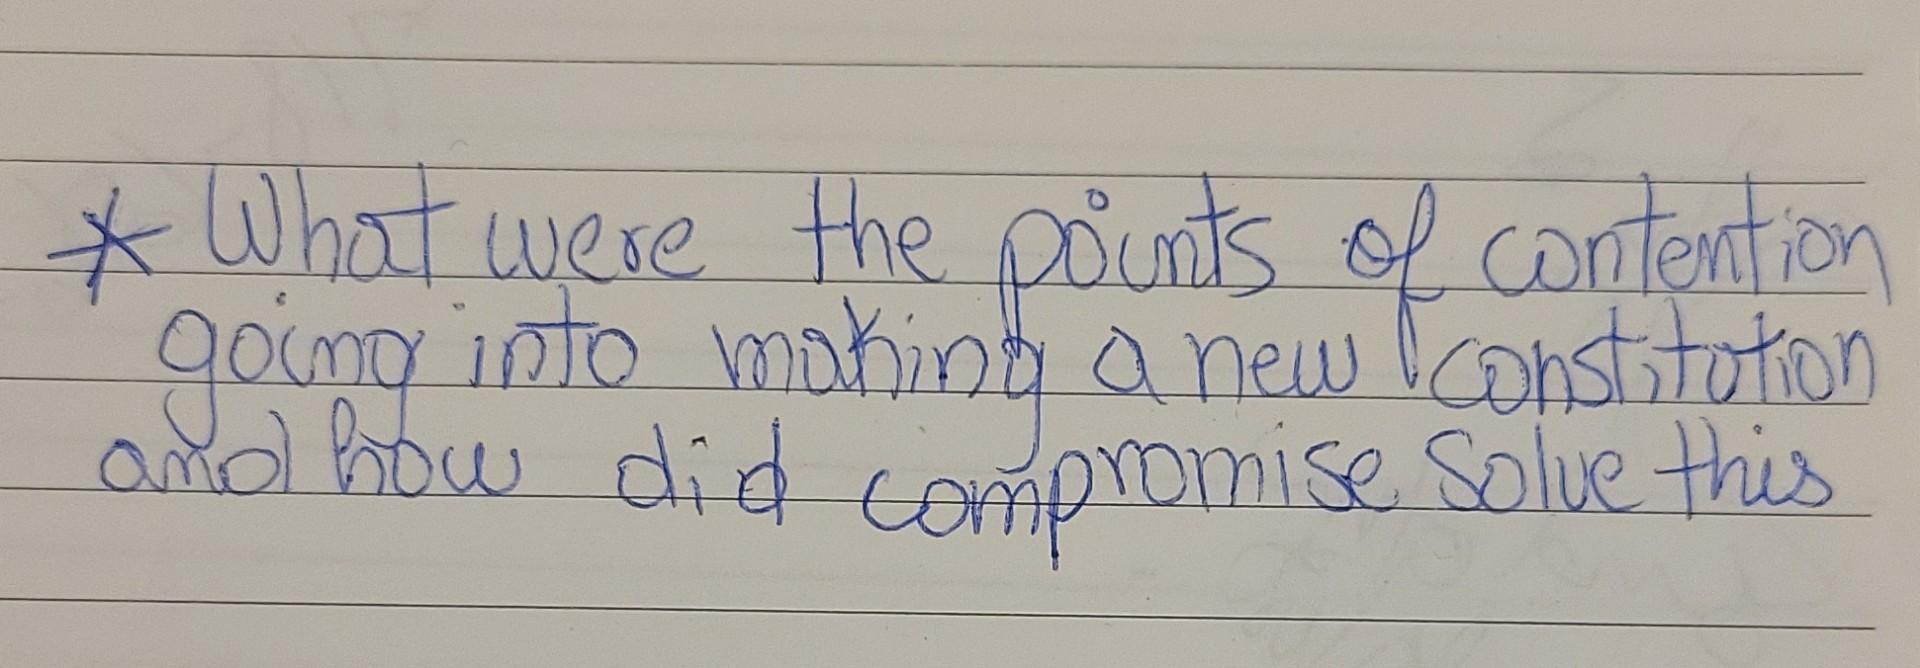 * What were the points of contention
going into making a new constitution
and how did compromise solve this